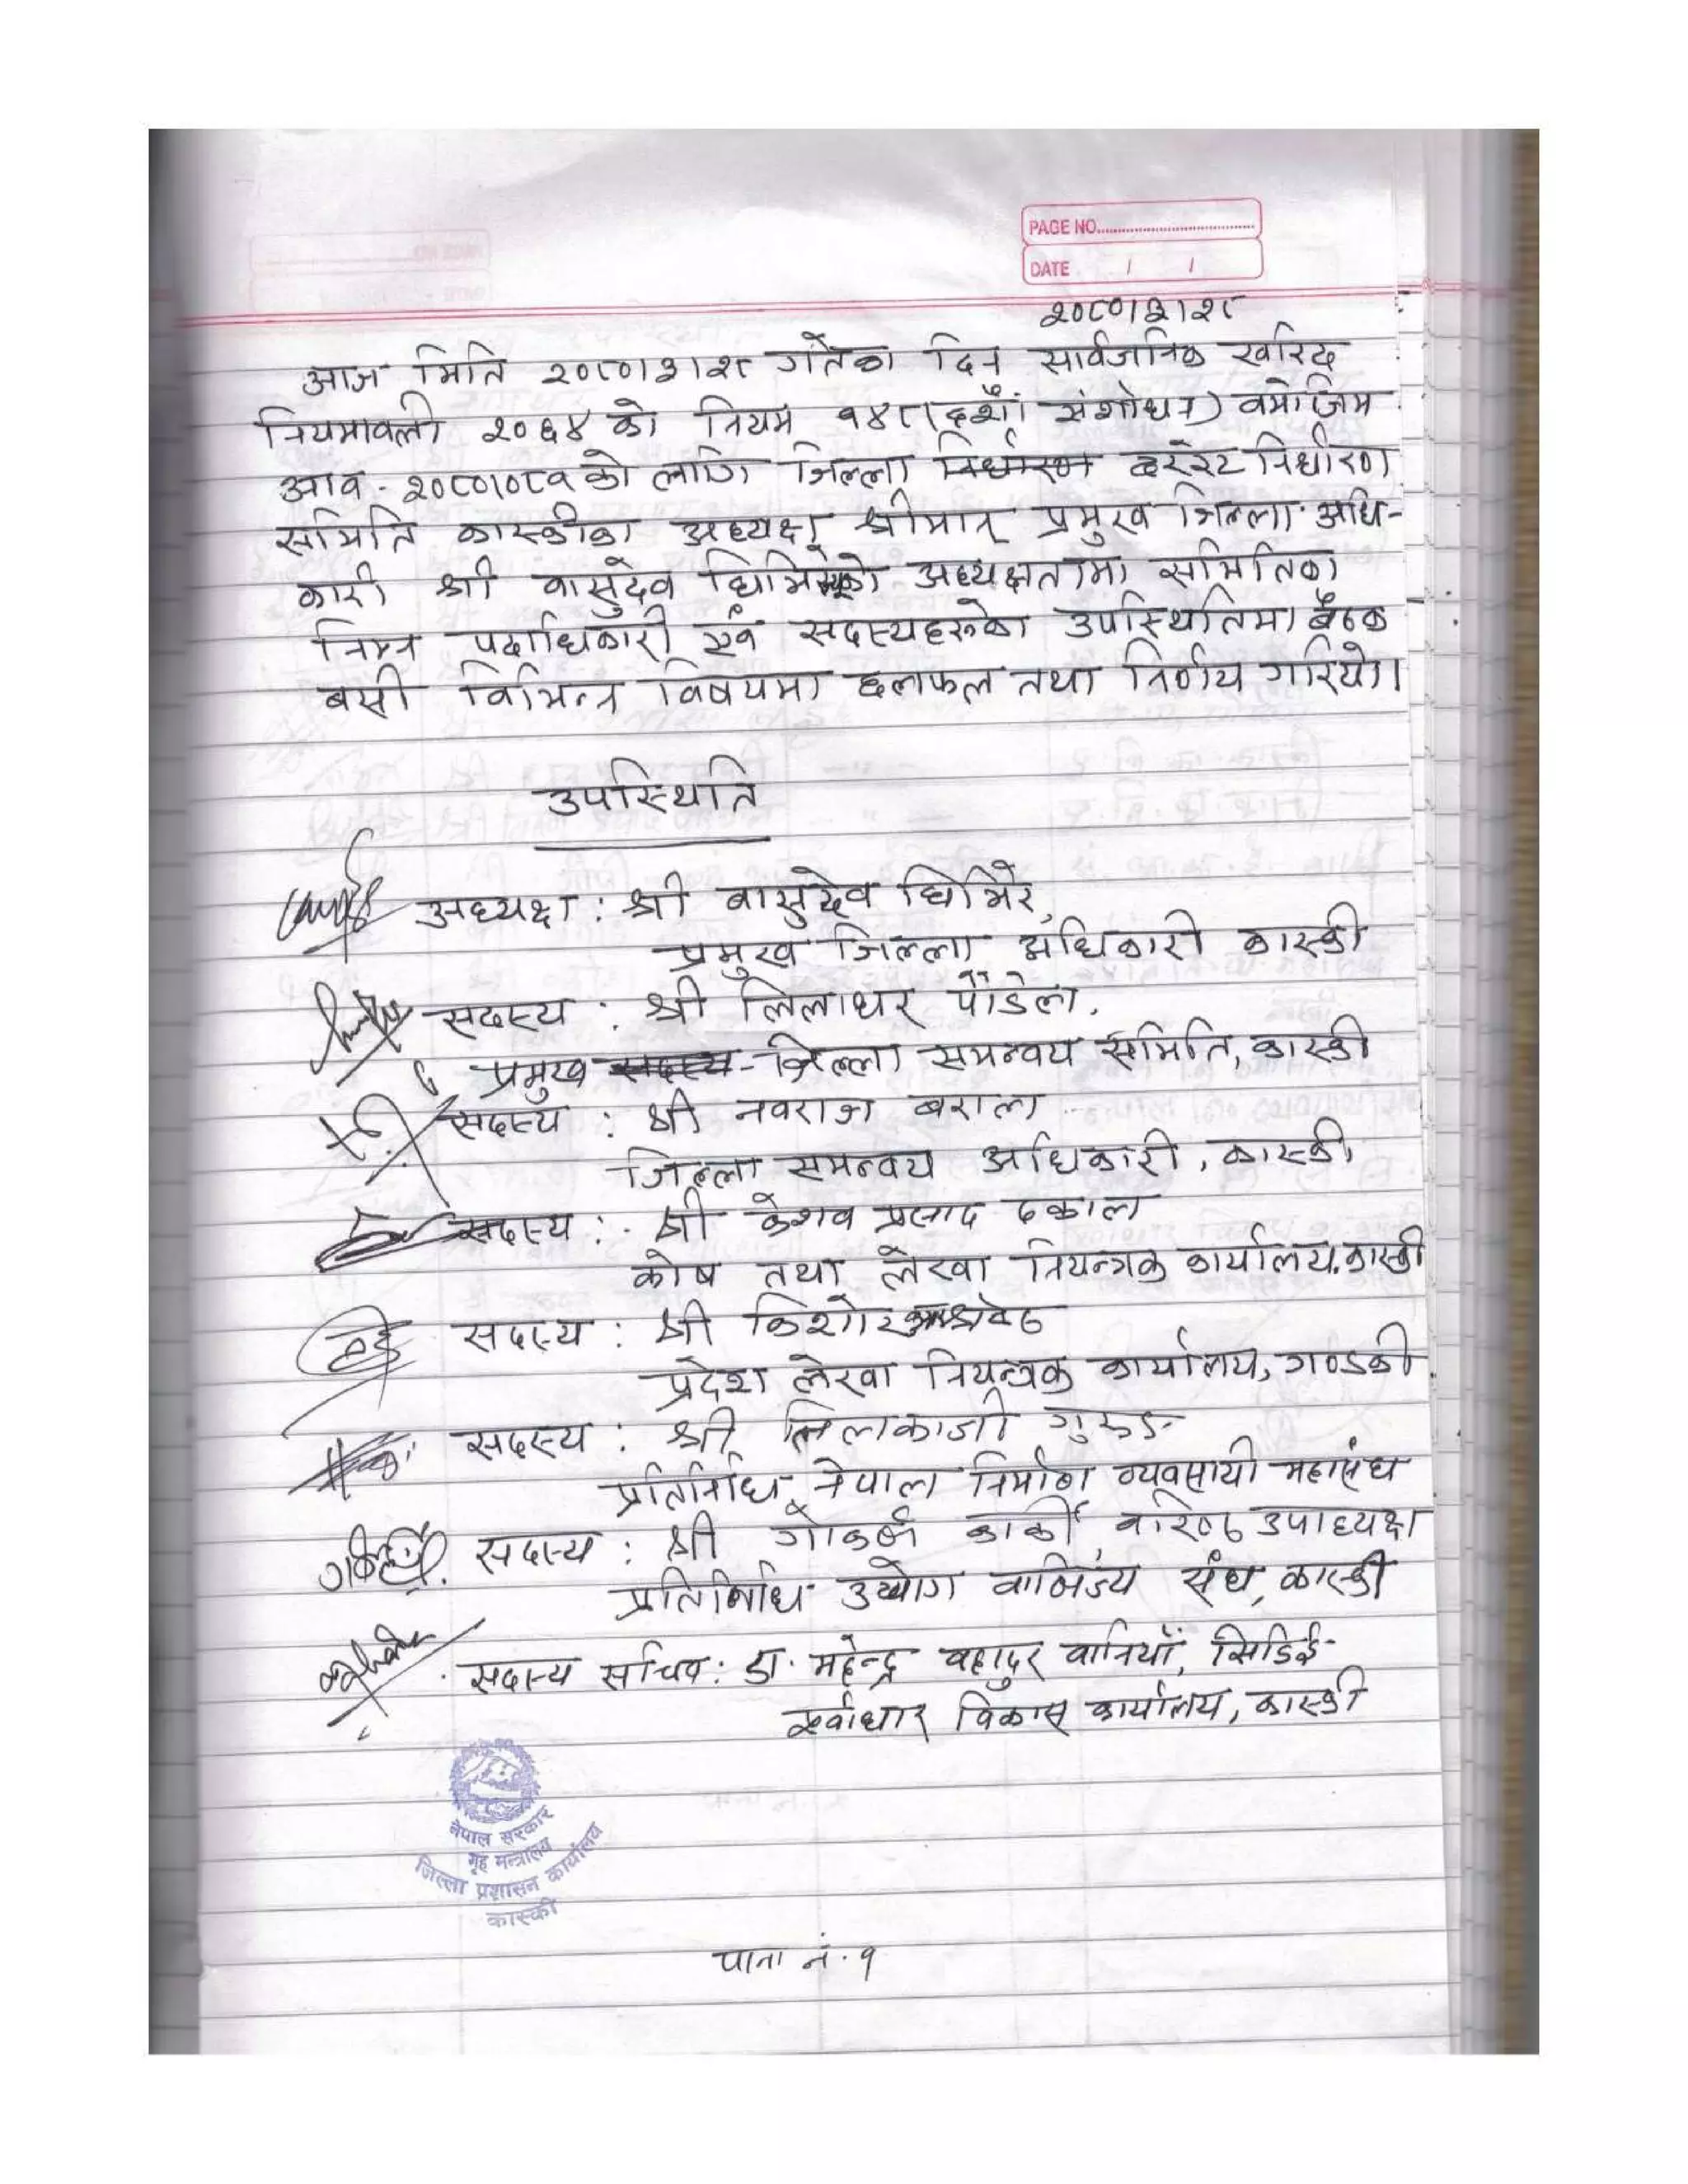 PAGE NO.
DATE / /
२०८०।३।२८
आज मिति २०८०।३।२८ गतेका दिन सार्वजनिक खरिद
नियमावली २०६४ को नियम १४८ (दशौं संशोधन) बमोजिम
आव. २०८०।०८१ को लागि जिल्ला निर्धारण दररेट निर्धारण
समिति कास्कीका अध्यक्ष श्रीमान् प्रमुख जिल्ला अधि-
कारी श्री वासुदेव घिमिरेको अध्यक्षतामा समितिका
निम्न पदाधिकारी एवं सदस्यहरुको उपस्थितिमा बैठक
बसी विभिन्न विषयमा छलफल तथा निर्णय गरियो।
उपस्थिति
अध्यक्ष : श्री वासुदेव घिमिरे,
प्रमुख जिल्ला अधिकारी कास्की
सदस्य : श्री लिलाधर पौडेल.
प्रमुख सदस्य - जिल्ला समन्वय समिति, कास्की
सदस्य : श्री नवराज बराल
जिल्ला समन्वय अधिकारी, कास्की
सदस्य : श्री केशव प्रसाद ढकाल
कोष तथा लेखा नियन्त्रक कार्यालय, कास्की
सदस्य : श्री किशोर श्रेष्ठ
प्रदेश लेखा नियन्त्रक कार्यालय, गण्डकी
सदस्य : श्री लिलाकाजी गुरुङ
प्रतिनिधि नेपाल निर्माण व्यवसायी महासंघ
सदस्य : श्री गोकर्ण कार्की, वरिष्ठ उपाध्यक्ष
प्रतिनिधि उद्योग वाणिज्य संघ, कास्की
सदस्य सचिव : डा. महेन्द्र बहादुर बानियाँ, सिडिई
पूर्वाधार विकास कार्यालय, कास्की
नेपाल सरकार
गृह मन्त्रालय
जिल्ला प्रशासन कार्यालय
कास्की
पाना नं. १